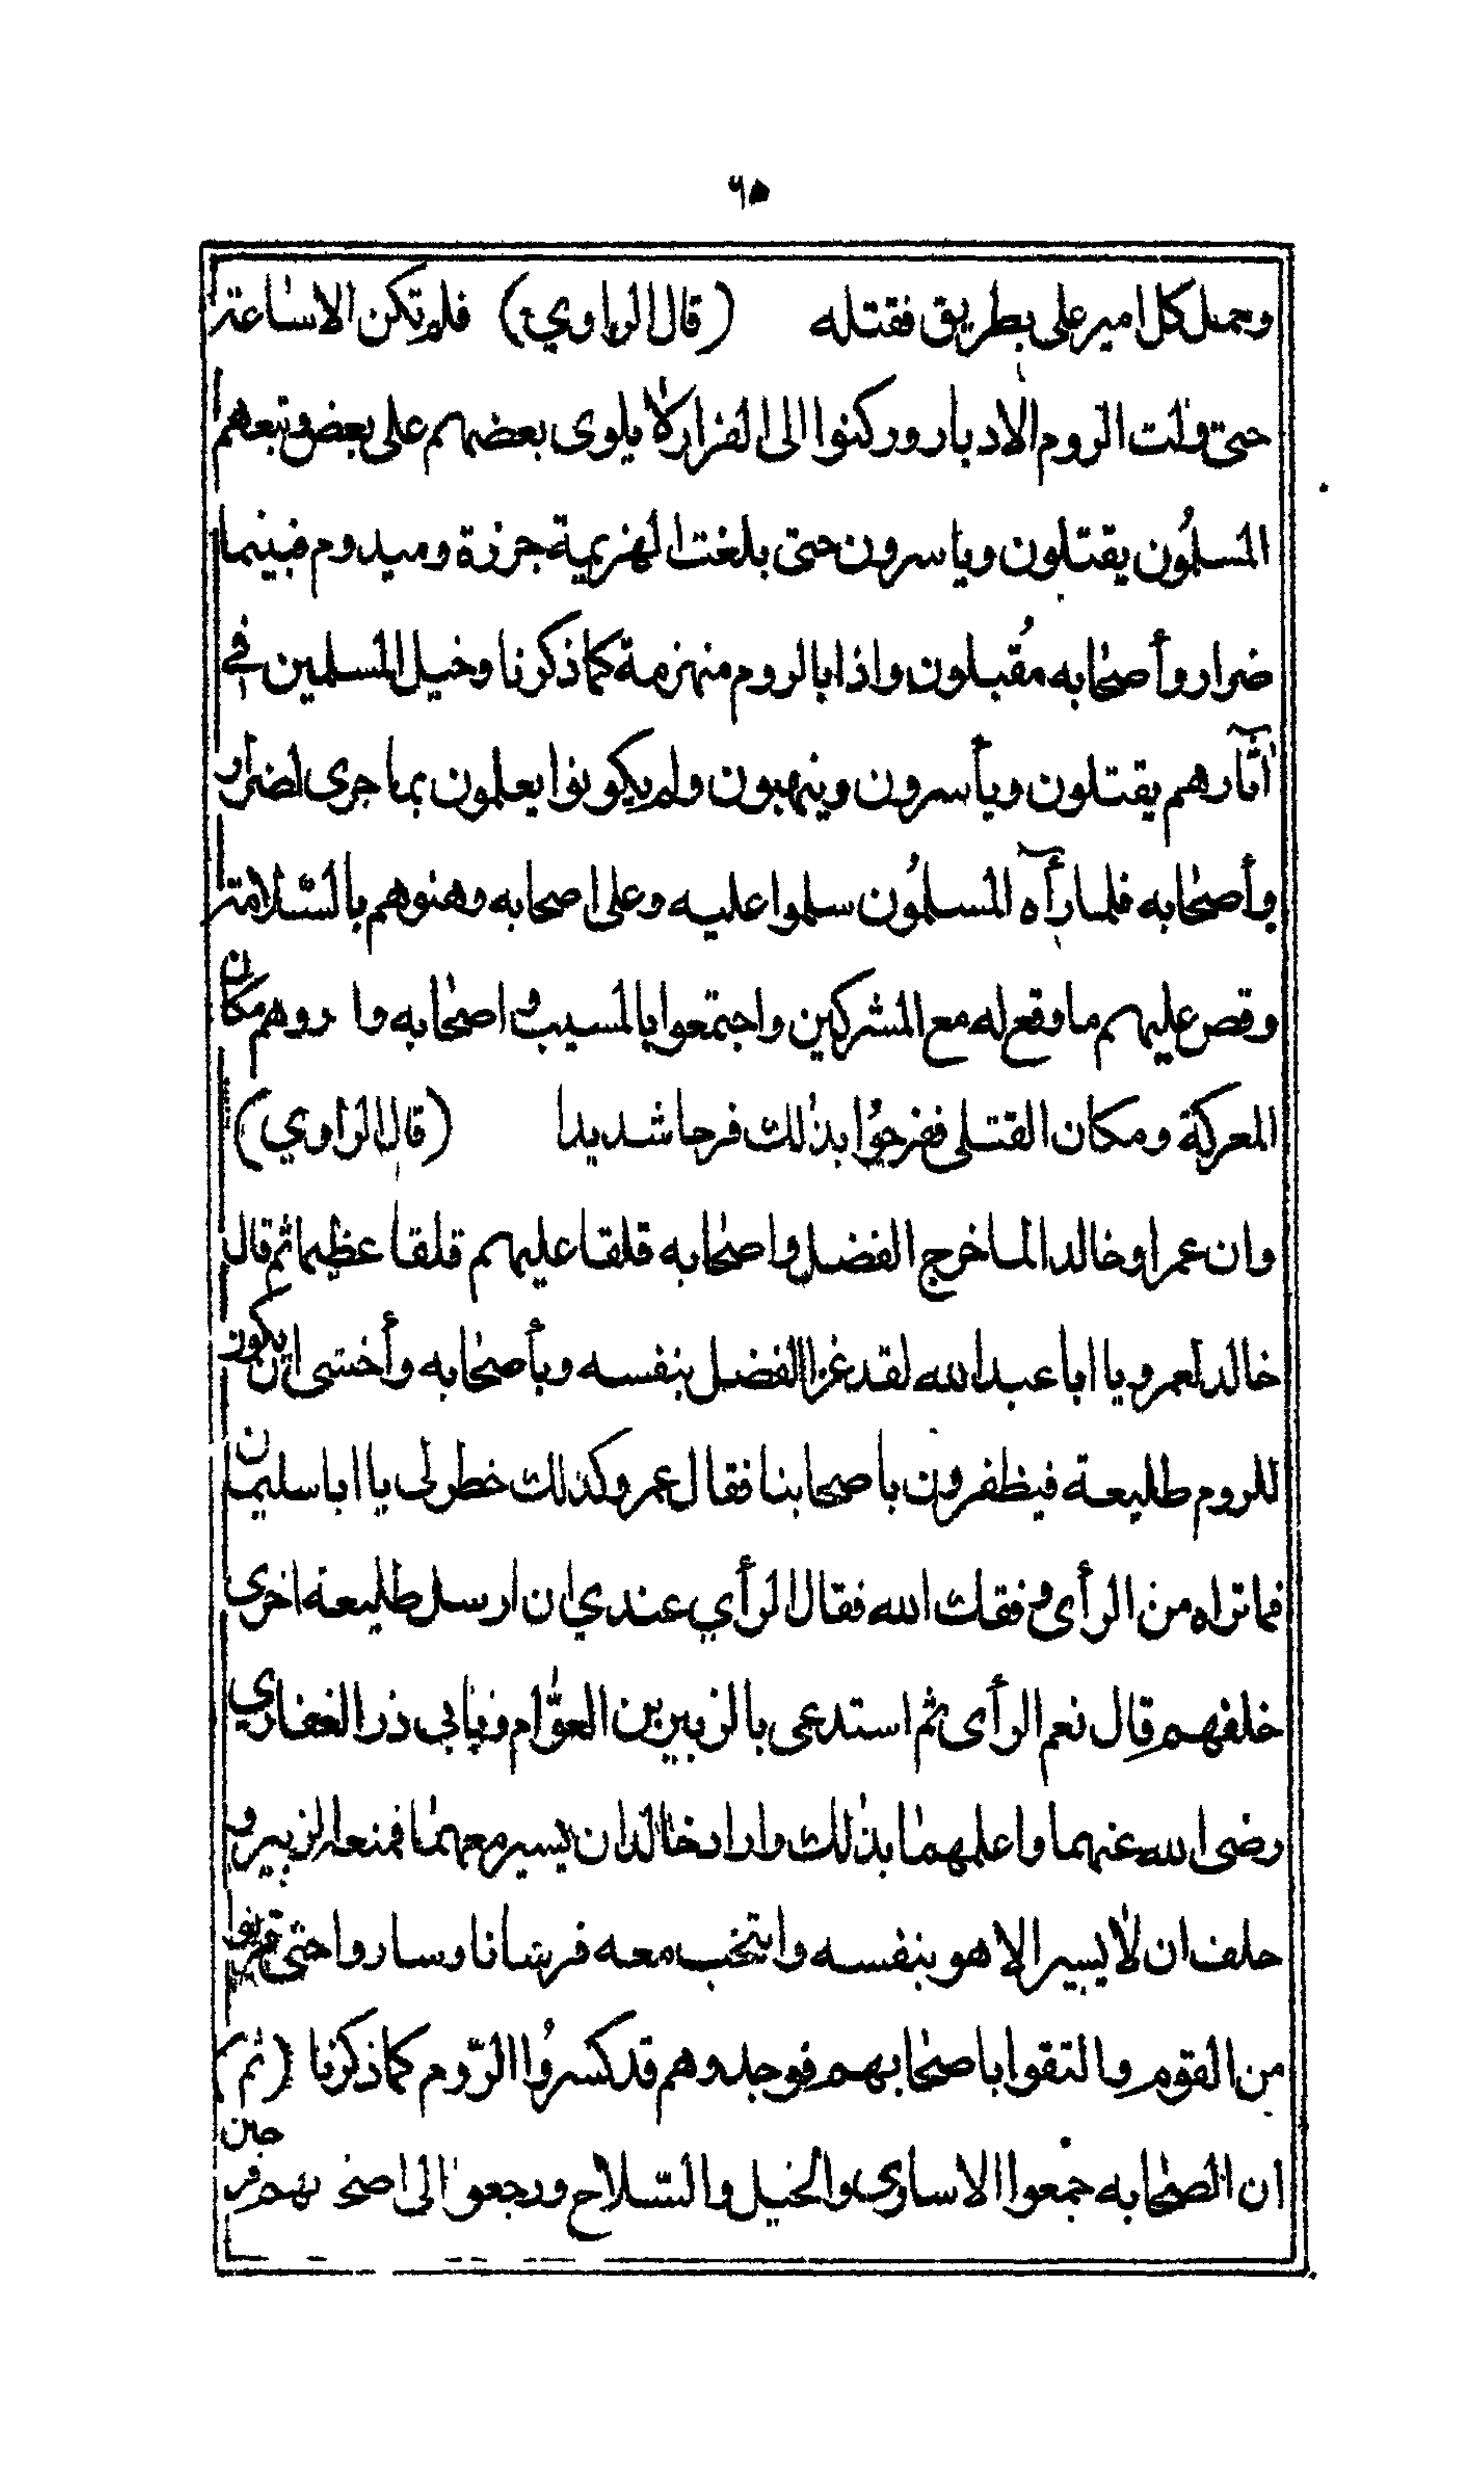 ٦٥
وحمل كل امير على بطريق فقتله (قال الراوي) فلم تكن الا ساعة
حتى ولت الروم الادبار وركنوا الى الفرار لا يلوى بعضهم على بعض وتبعهم
المسلمُون يقتلون وياسرون حتى بلغت الهزيمة جرزة وميدوم فبينما
ضرار وأصحابه مُقبلون واذا بالروم منهزمة كما ذكرنا وخيل المسلمين في
اثآرهم يقتلون ويأسرون وينهبون ولم يكونوا يعلمون بما جرى لضرار
وأصحابه فلما رأه المسلمُون سلموا عليه وعلى اصحابه وهنوهم بالسّلامة
وقص عليهم ما وقع له مع المشركين واجتمعوا بالمسيب واصحابه مكان
المعركة ومكان القتلى ففرحُوا بذلك فرحا شديدا (قال الراوي)
وان عمرا وخالدا لما خرج الفضل واصحابه قلقا عليهم قلقا عظيما ثم قال
خالد لعمرو يا ابا عبد الله لقد غزا الفضل بنفسه وبأصحابه وأخشى ان يكون
للروم طليعة فيظفرون باصحابنا فقال عمرو كذلك خطر لى يا ابا سليمان
فما تراه من الرأى وفقك الله فقال الرأي عندي ان ارسل طليعة اخرى
خلفهم قال نعم الرأى ثم استدعى بالزبير بن العوّام وبابي ذر الغفاري
رضى الله عنهما واعلمهما بذلك واراد خالد ان يسير معهما فمنعه الزبير و
حلف ان لا يسير الا هو بنفسه وانتخب معه فرسانا وساروا حتى قربوا
من القوم والتقوا باصحابهم فوجدوهم قد كسرُوا الرّوم كما ذكرنا (ثم)
ان الصحابه جمعوا الاسارى والخيل والسّلاح ورجعوا الى اصحابهم فرحين